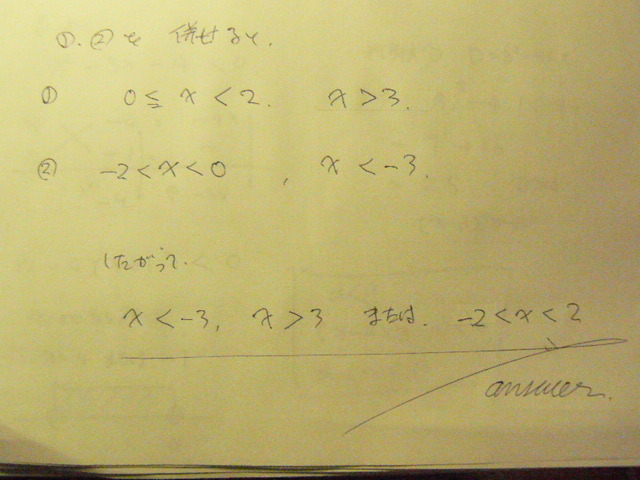 ①.②を 併せると.
① 0≦x<2. x>3.
② -2<x<0 , x<-3.
したがって.
x<-3, x>3 または. -2<x<2
answer.